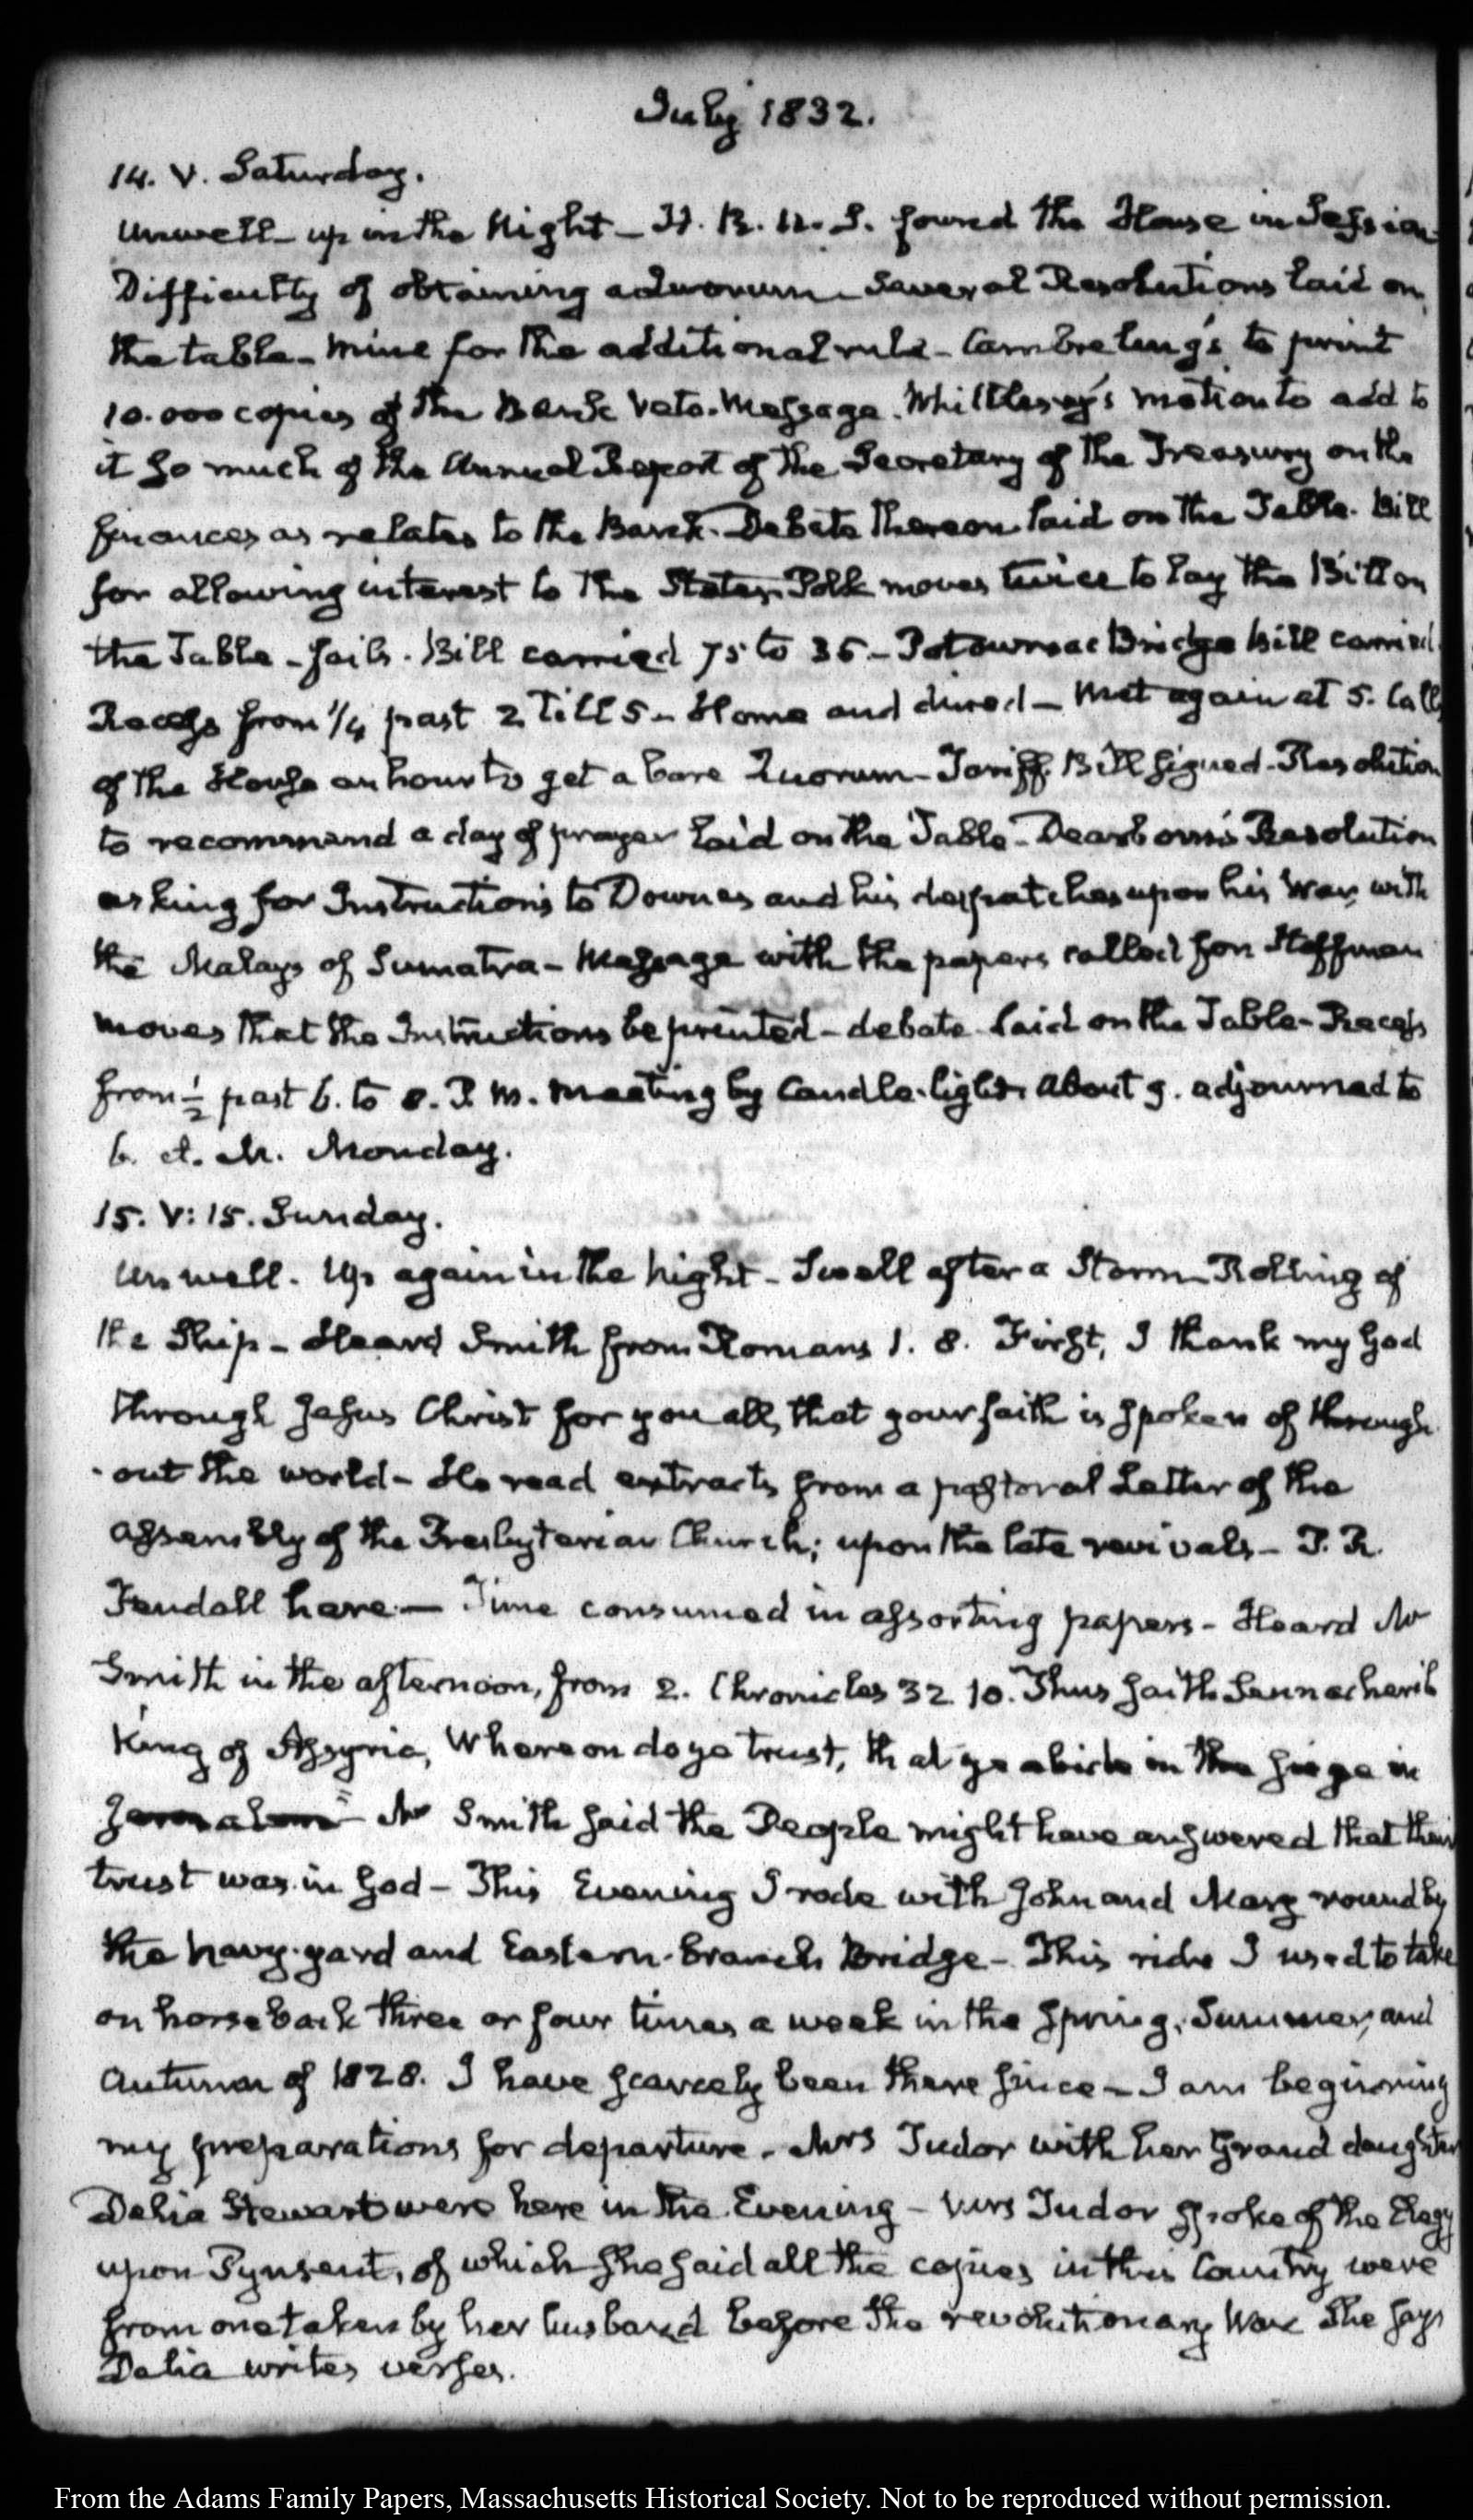 July 1832.
14. V. Saturday.
Unwell – up in the Night – H. R. U. S. found the House in Session
Difficulty of obtaining a quorum – Several Resolutions laid on
the table – Mine for the additional rule – Cambreleng's to print
10.000 copies of the Bank Veto-Message. Whittlesey's motion to add to
it so much of the Annual Report of the Secretary of the Treasury on the
finances as relates to the Bank. Debate thereon laid on the Table. Bill
for allowing interest to the States – Polk moves twice to lay the Bill on
the Table – fails. Bill carried 75 to 36 – Potowmac Bridge bill carried
Recess from 1/4 past 2 till 5 – Home and dined – Met again at 5. Call
of the House an hour to get a bare Quorum – Tariff Bill signed – Resolution
to recommend a day of prayer laid on the Table – Dearborn's Resolution
asking for Instructions to Downes and his despatches upon his War, with
the Malays of Sumatra – Message with the papers called for Hoffman
moves that the Instructions be printed – debate laid on the Table – Recess
from 1/2 past 6. to 8. P. M. Meeting by Candle-light. About 9. adjourned to
6. A. M. Monday.
15. V: 15. Sunday.
Unwell. Up again in the Night – Swell after a Storm – Rolling of
the Ship – Heard Smith from Romans 1. 8. First, I thank my God
through Jesus Christ for you all, that your faith is spoken of through
out the world – He read extracts from a pastoral Letter of the
assembly of the Presbyterian Church; upon the late revivals – P. R.
Fendall here – Time consumed in assorting papers – Heard Mr
Smith in the afternoon, from 2. Chronicles 32 10. Thus saith Sennacherib
King of Assyria, Whereon do ye trust, that ye abide in the siege in
Jerusalem" – Mr Smith said the People might have answered that their
trust was in God – This Evening I rode with John and Mary round by
the navy-yard and Eastern-branch Bridge – This ride I used to take
on horseback three or four times a week in the Spring, Summer, and
Autumn of 1828. I have scarcely been there since – I am beginning
my preparations for departure. Mrs Tudor with her Grand daughter
Delia Stewart were here in the Evening – Mrs Tudor spoke of the Elegy
upon Pynsent, of which she said all the copies in this Country were
from one taken by her husband before the revolutionary War She says
Delia writes verses.
From the Adams Family Papers, Massachusetts Historical Society. Not to be reproduced without permission.